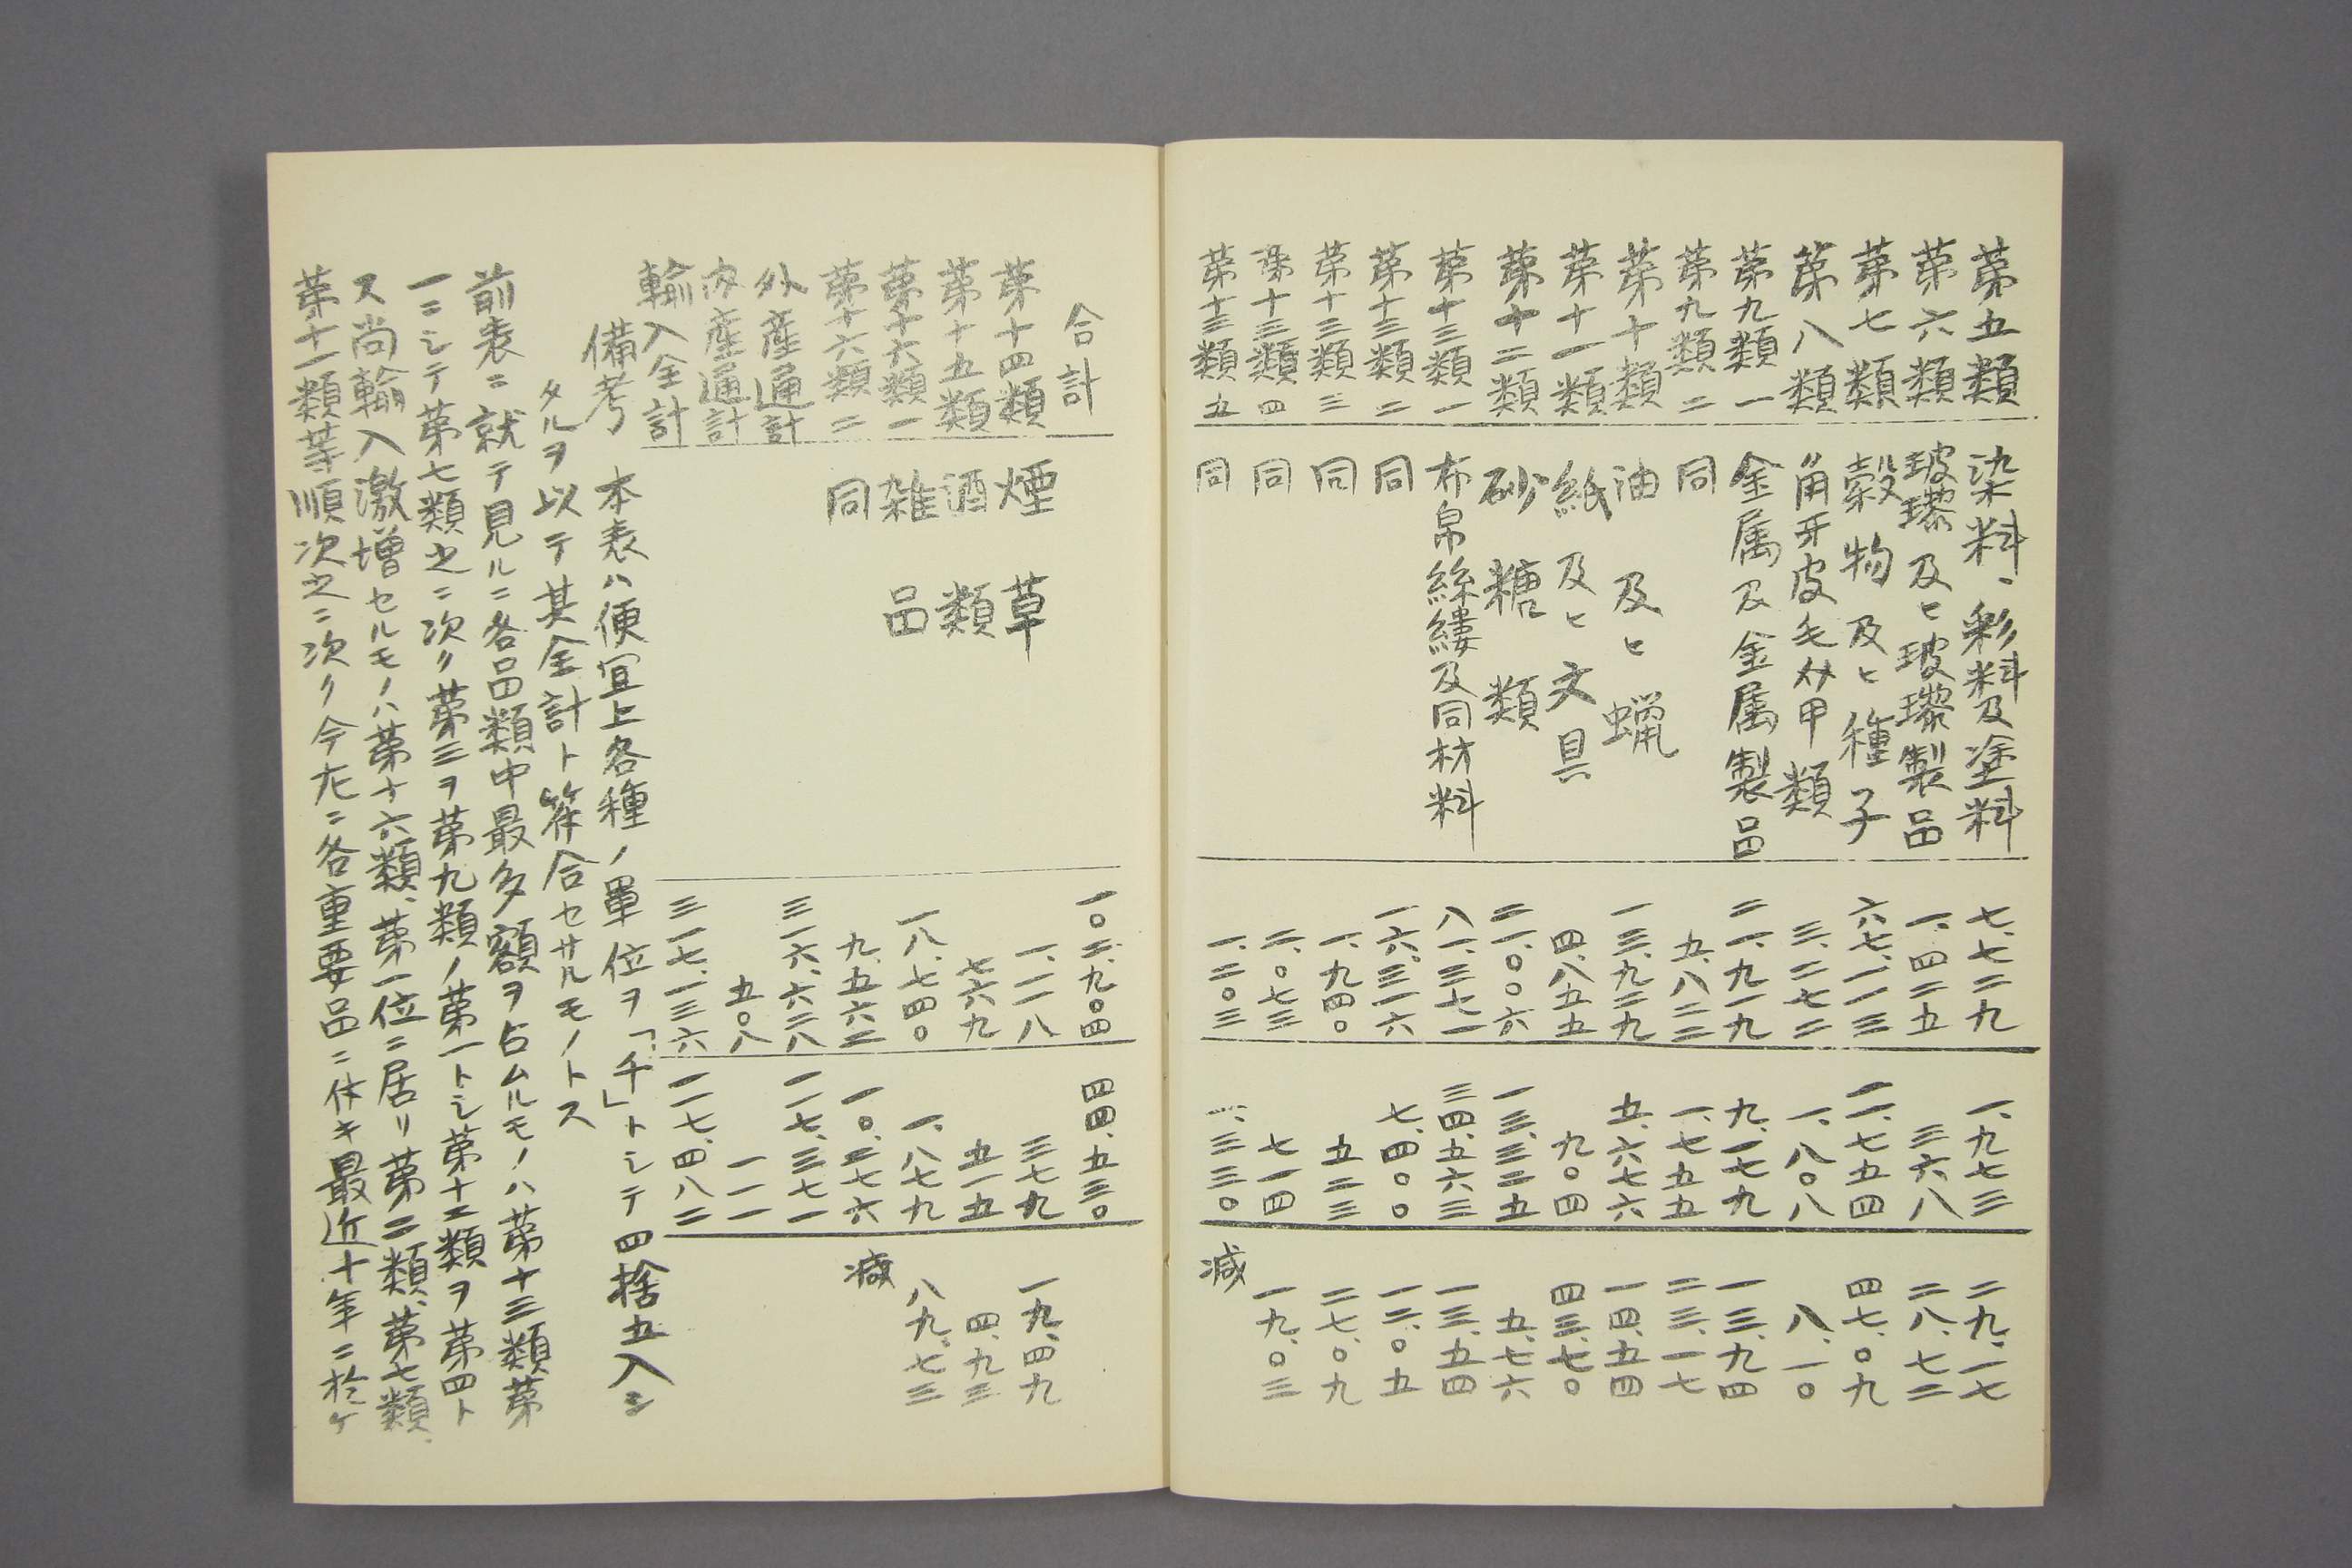 第五類 染料、彩料及塗料 七、七二九 一、九七三 二九、一七
第六類 玻璨及ヒ玻璨製品 一、四二五 三六八 二八、七二
第七類 穀物及ヒ種子 六七、一一三 一一、七五四 四七、〇九
第八類 角牙皮毛介甲類 三、二七二 一、八〇八 八、一〇
第九類一 金属及金属製品 二一、九一九 九、一七九 一三、九四
第九類二 同 五、八二二 一、七五五 二三、一七
第十類 油及ヒ蠟 一三、九二九 五、六七六 一四、五四
第十一類 紙及ヒ文具 四、八五五 九〇四 四三、七〇
第十二類 砂糖類 二一、〇〇六 一三、三二五 五、七六
第十三類一 布帛絲縷及同材料 八一、三七一 三四、五六三 一三、五四
第十三類二 同 一六、三一六 七、四〇〇 一二、〇五
第十三類三 同 一、九四〇 五二三 二七、〇九
第十三類四 同 二、〇七三 七一四 一九、〇三
第十三類五 同 一、二〇三 一、三三〇 減
合計 一〇二、九〇四 四四、五三〇
第十四類 煙草 一、一一八 三七九 一九、四九
第十五類 酒類 七六九 五一五 四、九三
第十六類一 雑品 一八、七四〇 一、八七九 八九、七三
第十六類二 同 九、五六二 一〇、二七六 減
外産通計 三一六、六二八 一一七、三七一
内産通計 五〇八 一一一
輸入全計 三一七、一三六 一一七、四八二
備考 本表ハ便宜上各種ノ單位ヲ「千」トシテ四捨五入シ
タルヲ以テ其全計ト符合セサルモノトス
前表ニ就テ見ルニ各品類中最多額ヲ占ムルモノハ第十三類第
一ニシテ第七類之ニ次リ第三ヲ第九類ノ第一トシ第十二類ヲ第四ト
ス尚輸入激増セルモノハ第十六類、第一位ニ居リ第二類、第七類、
第十一類等順次之ニ次リ今左ニ各重要品ニ付キ最近十年ニ於ケ